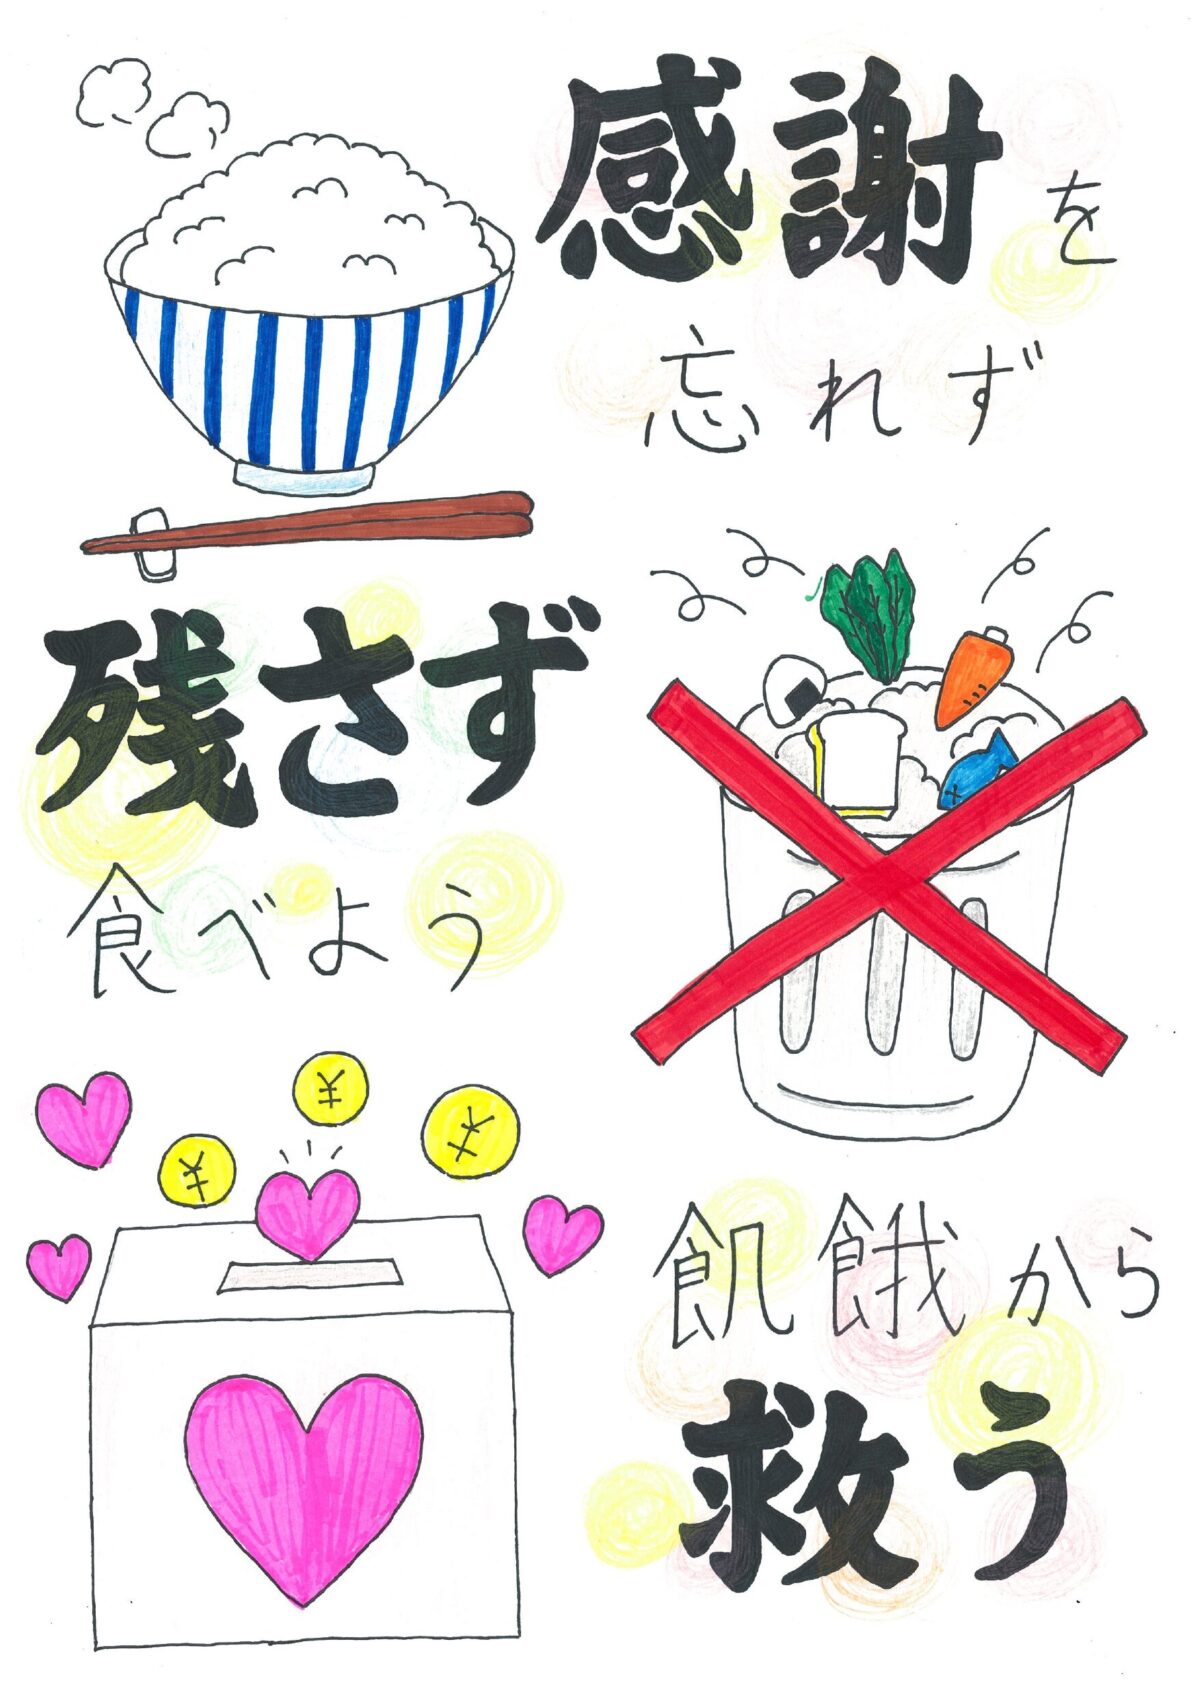 感謝を
忘れず
残さず
食べよう
¥
¥
¥
飢餓から
救う